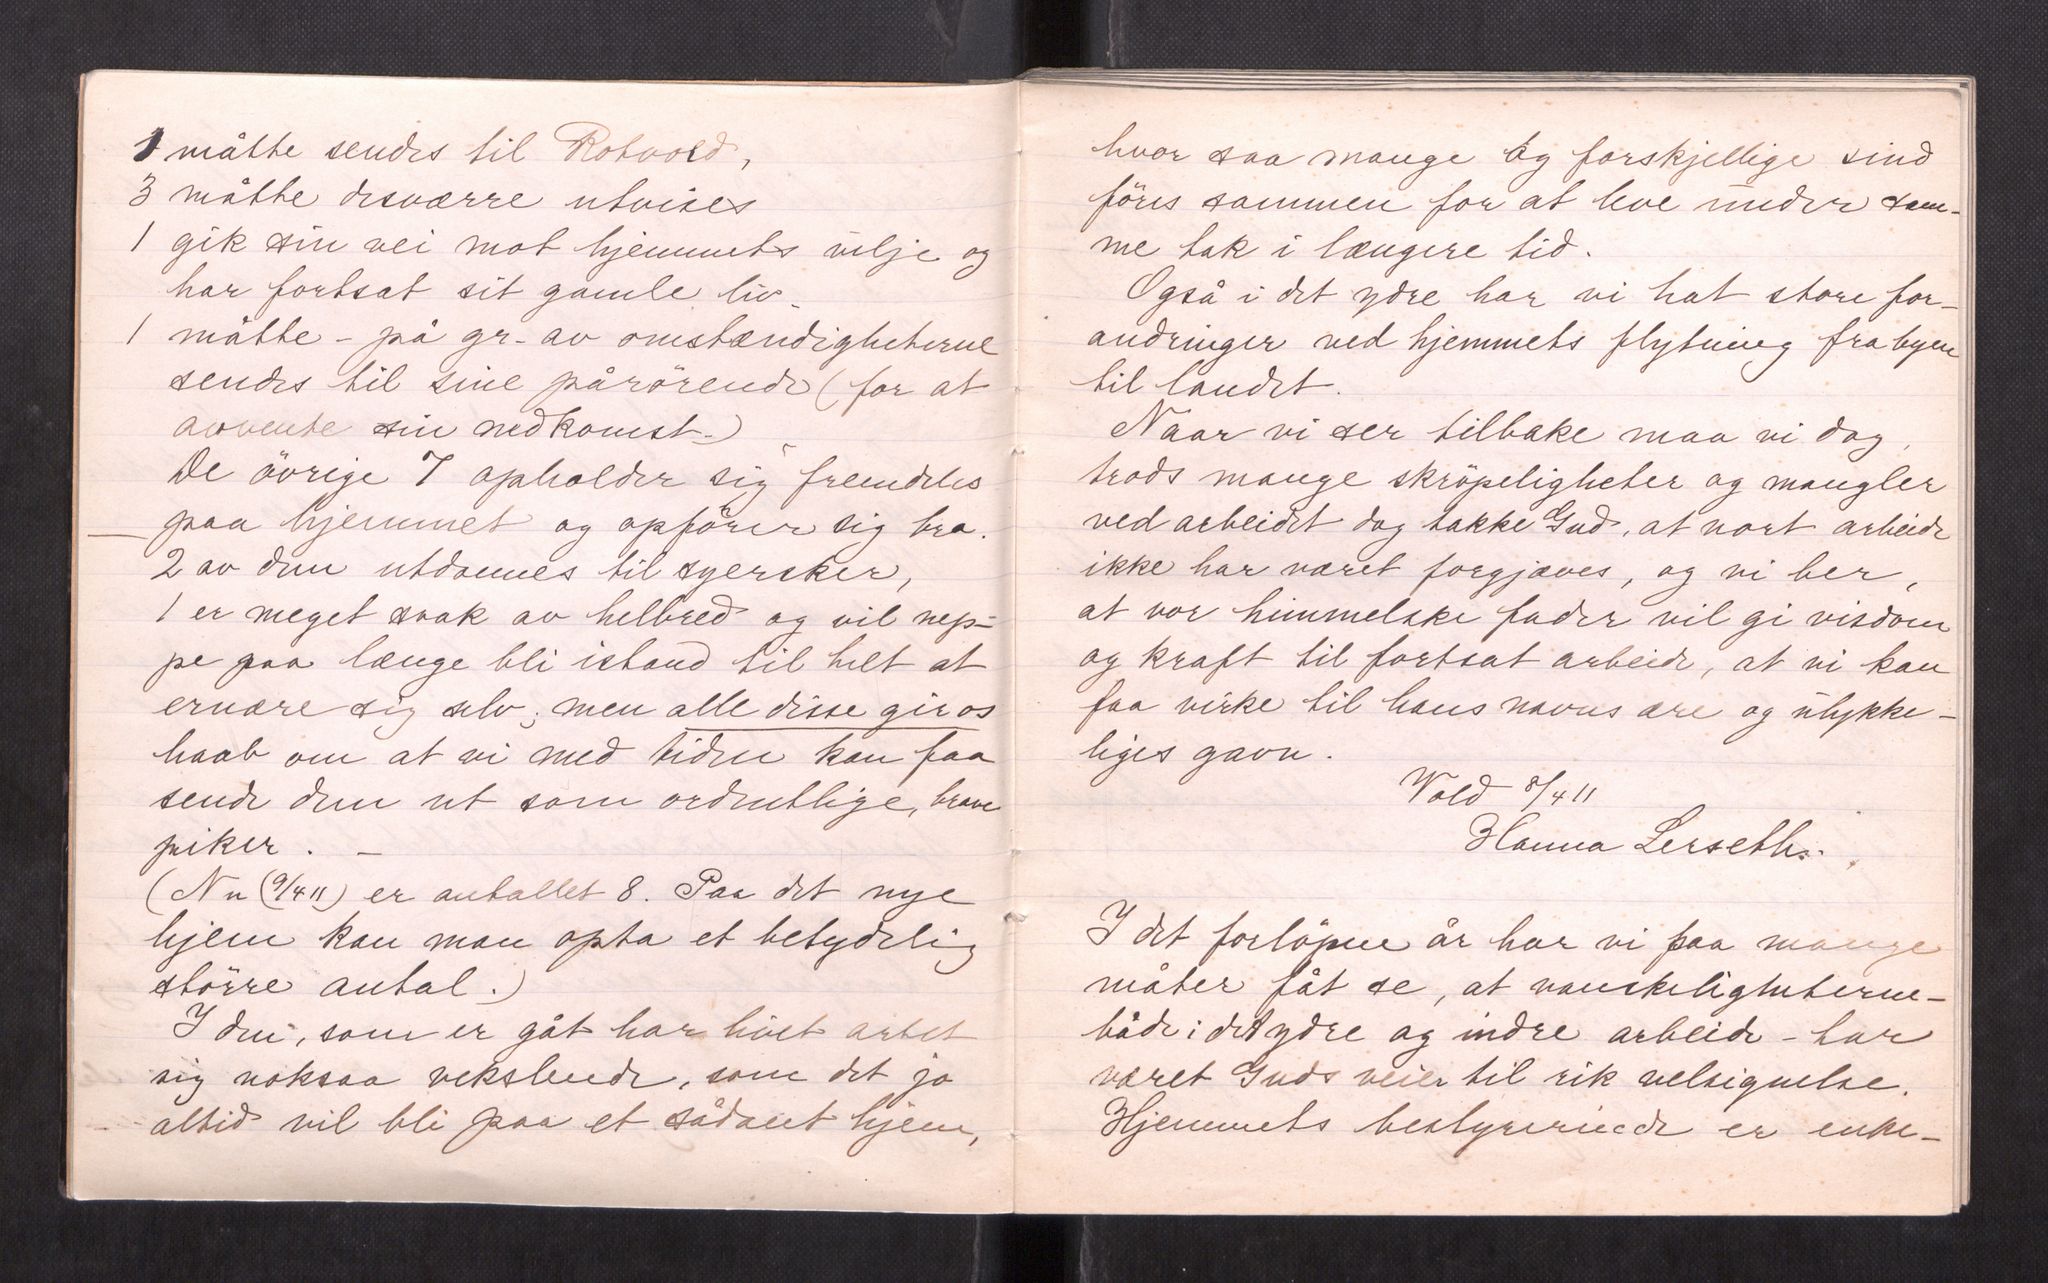 1 måtte sendes til Rotvold,
3 måtte desværre utvises
1 gik sin vei mot hjemmets vilje og
har fortsat sit gamle liv.
1 måtte - på gr. av omstændigheterne
sendes til sine pårörende (for at
avvente sin nedkomst.)
De övrige 7 opholder sig fremdeles
paa hjemmet og opförer sig bra.
2 av dem utdannes til syersker,
1 er meget svak av helbred og vil nep-
pe paa længe bli istand til helt at
ernære sig selv; men alle disse gir os
haab om at vi med tiden kan faa
sende dem ut som ordentlige, brave
piker. -
(Nu (9/4 11) er antallet 8. Paa det nye
hjem kan man opta et betydelig
större antal.)
I den, som er gåt har livet artet
sig noksaa vekslende, som det jo
altid vil bli paa et sådant hjem,
hvor saa mange og forskjellige sind
föres sammen for at leve under sam-
me tak i længere tid.
Også i det ydre har vi hat store for-
andringer ved hjemmets flytning fra byen
til landet.
Naar vi ser tilbake maa vi dog,
trods mange skröpeligheter og mangler
ved arbeidet dog takke Gud, at vort arbeide
ikke har været forgjæves, og vi ber,
at vor himmelske fader vil gi visdom
og kraft til fortsat arbeide, at vi kan
faa virke til hans navns ære og ulykke-
liges gavn.
Vold 8/4 11
Hanna Lerseth.
I det forlöpne år har vi paa mange
måter fåt se, at vanskeligheterne -
både i det ydre og indre arbeide - har
været Guds veier til rik velsignelse.
Hjemmets bestyrerinde er enke-